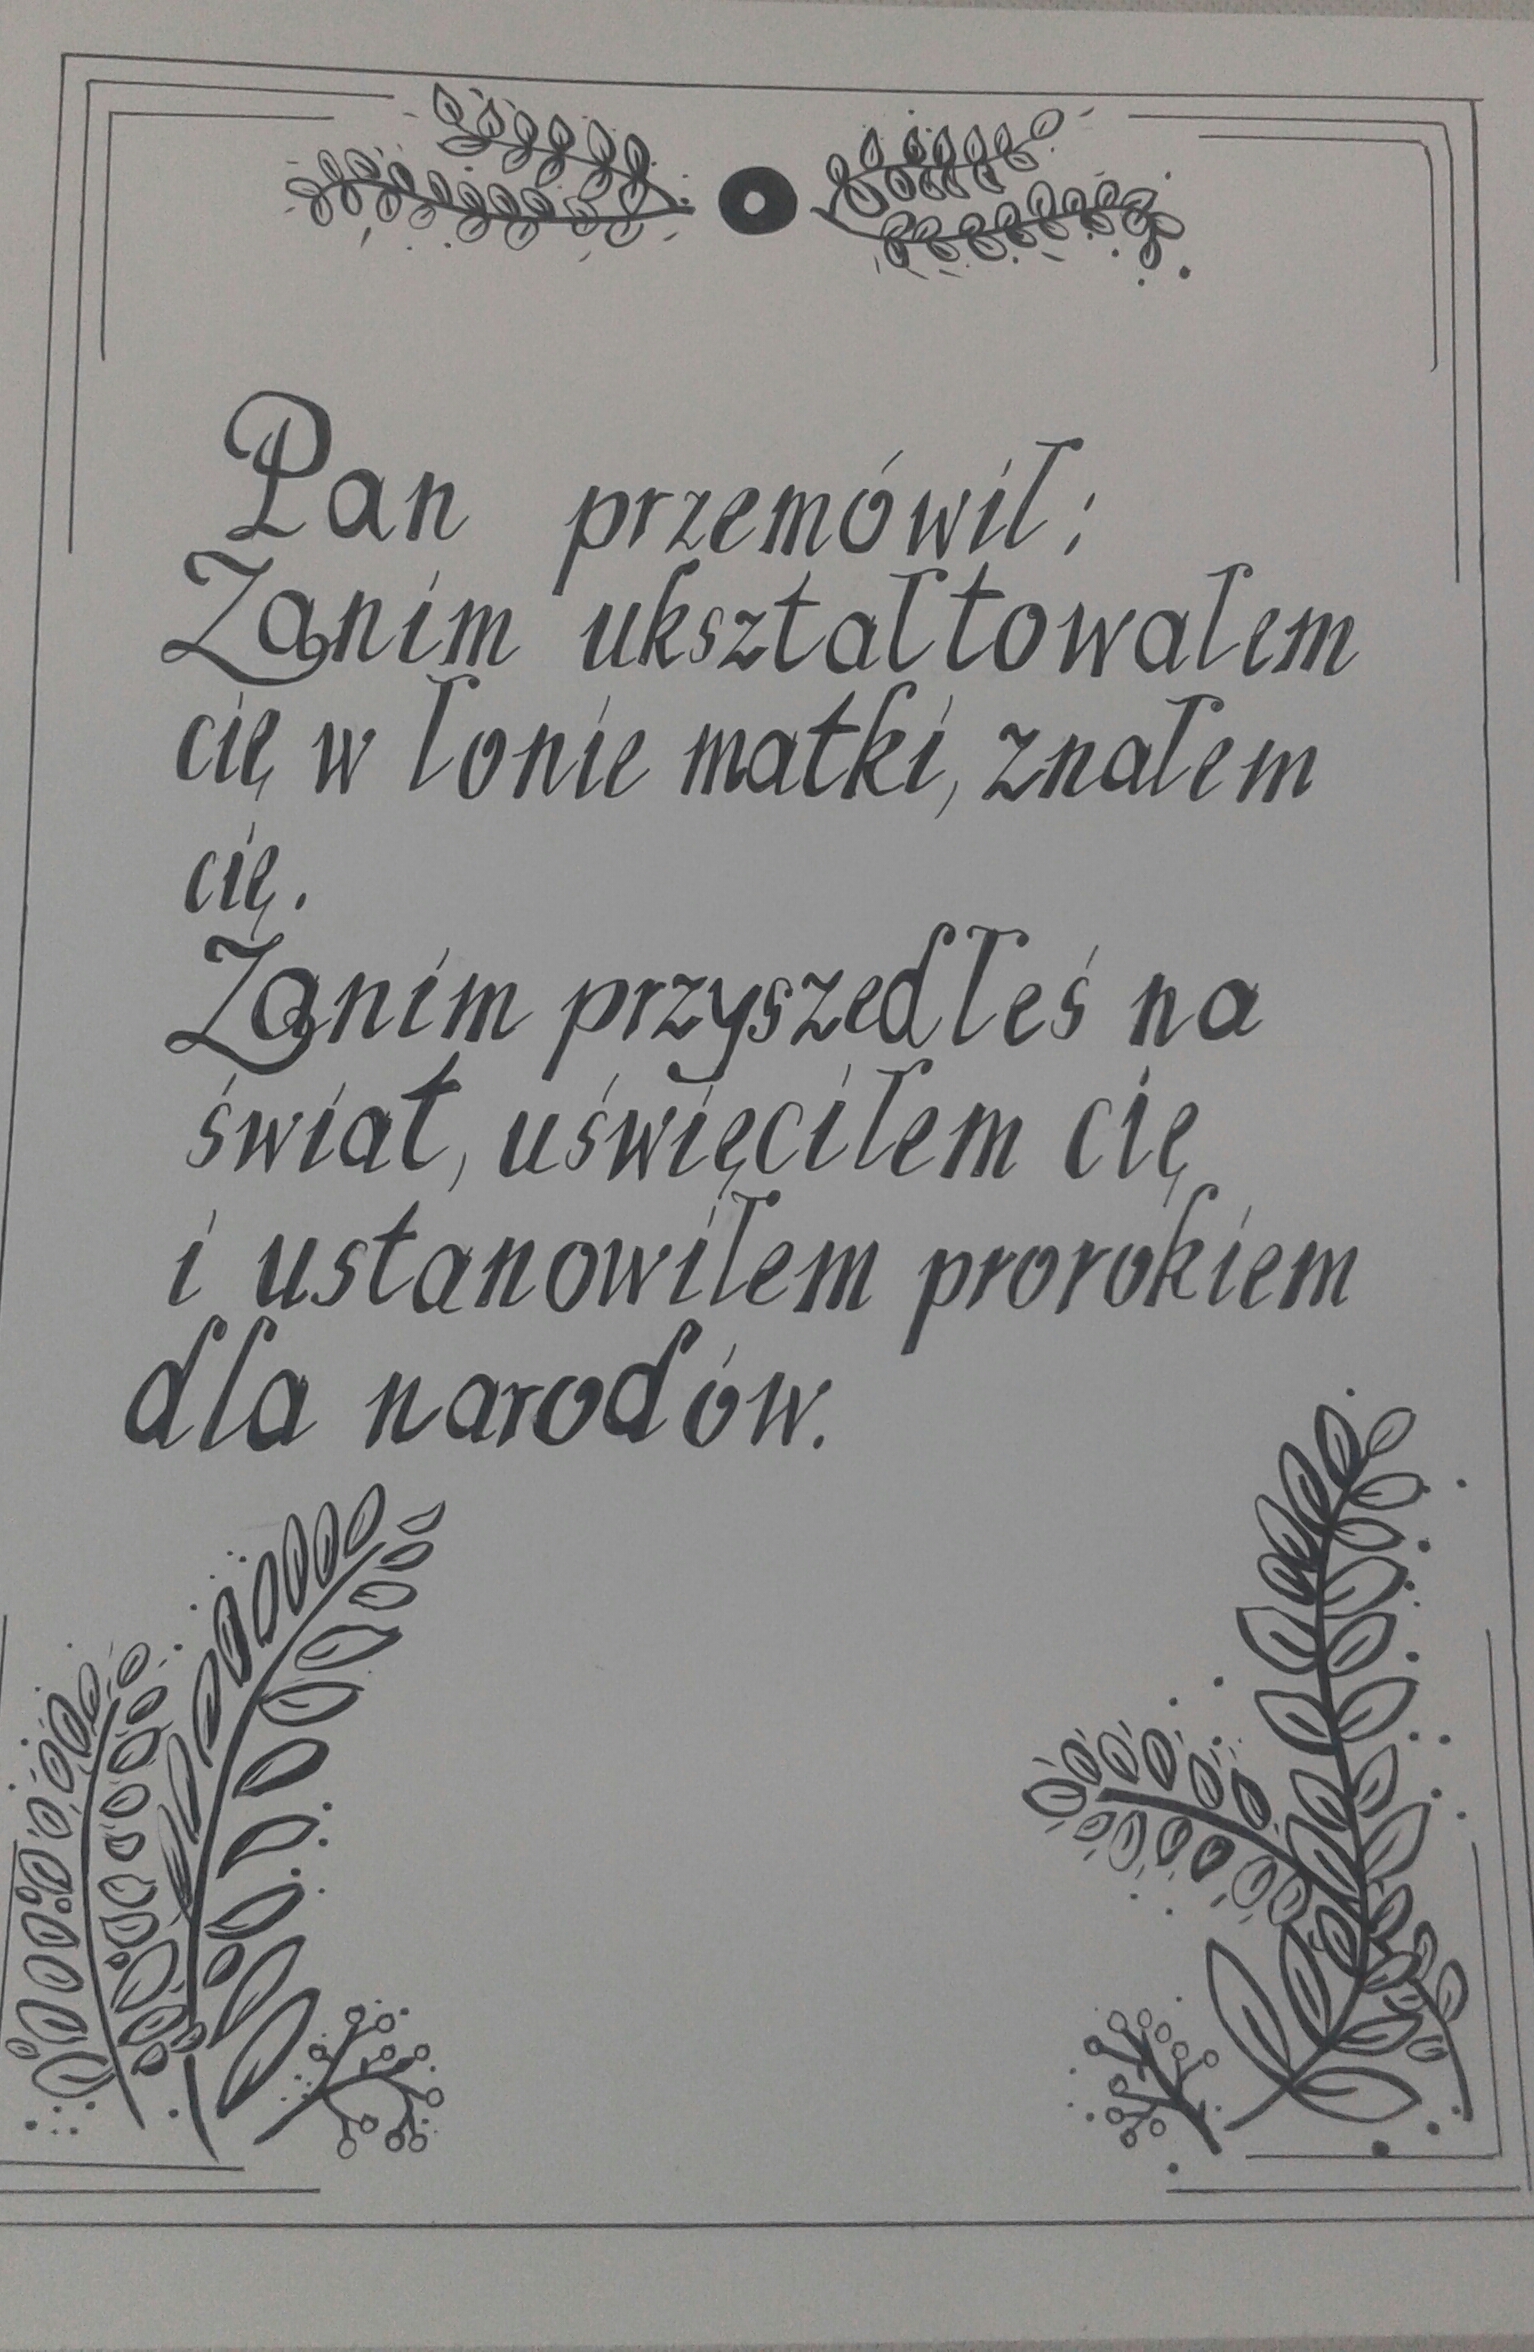 Pan przemówił:
Zanim ukształtowałem
cię w łonie matki, znałem
cię.
Zanim przyszedłeś na
świat, uświęciłem cię
i ustanowiłem prorokiem
dla narodów.